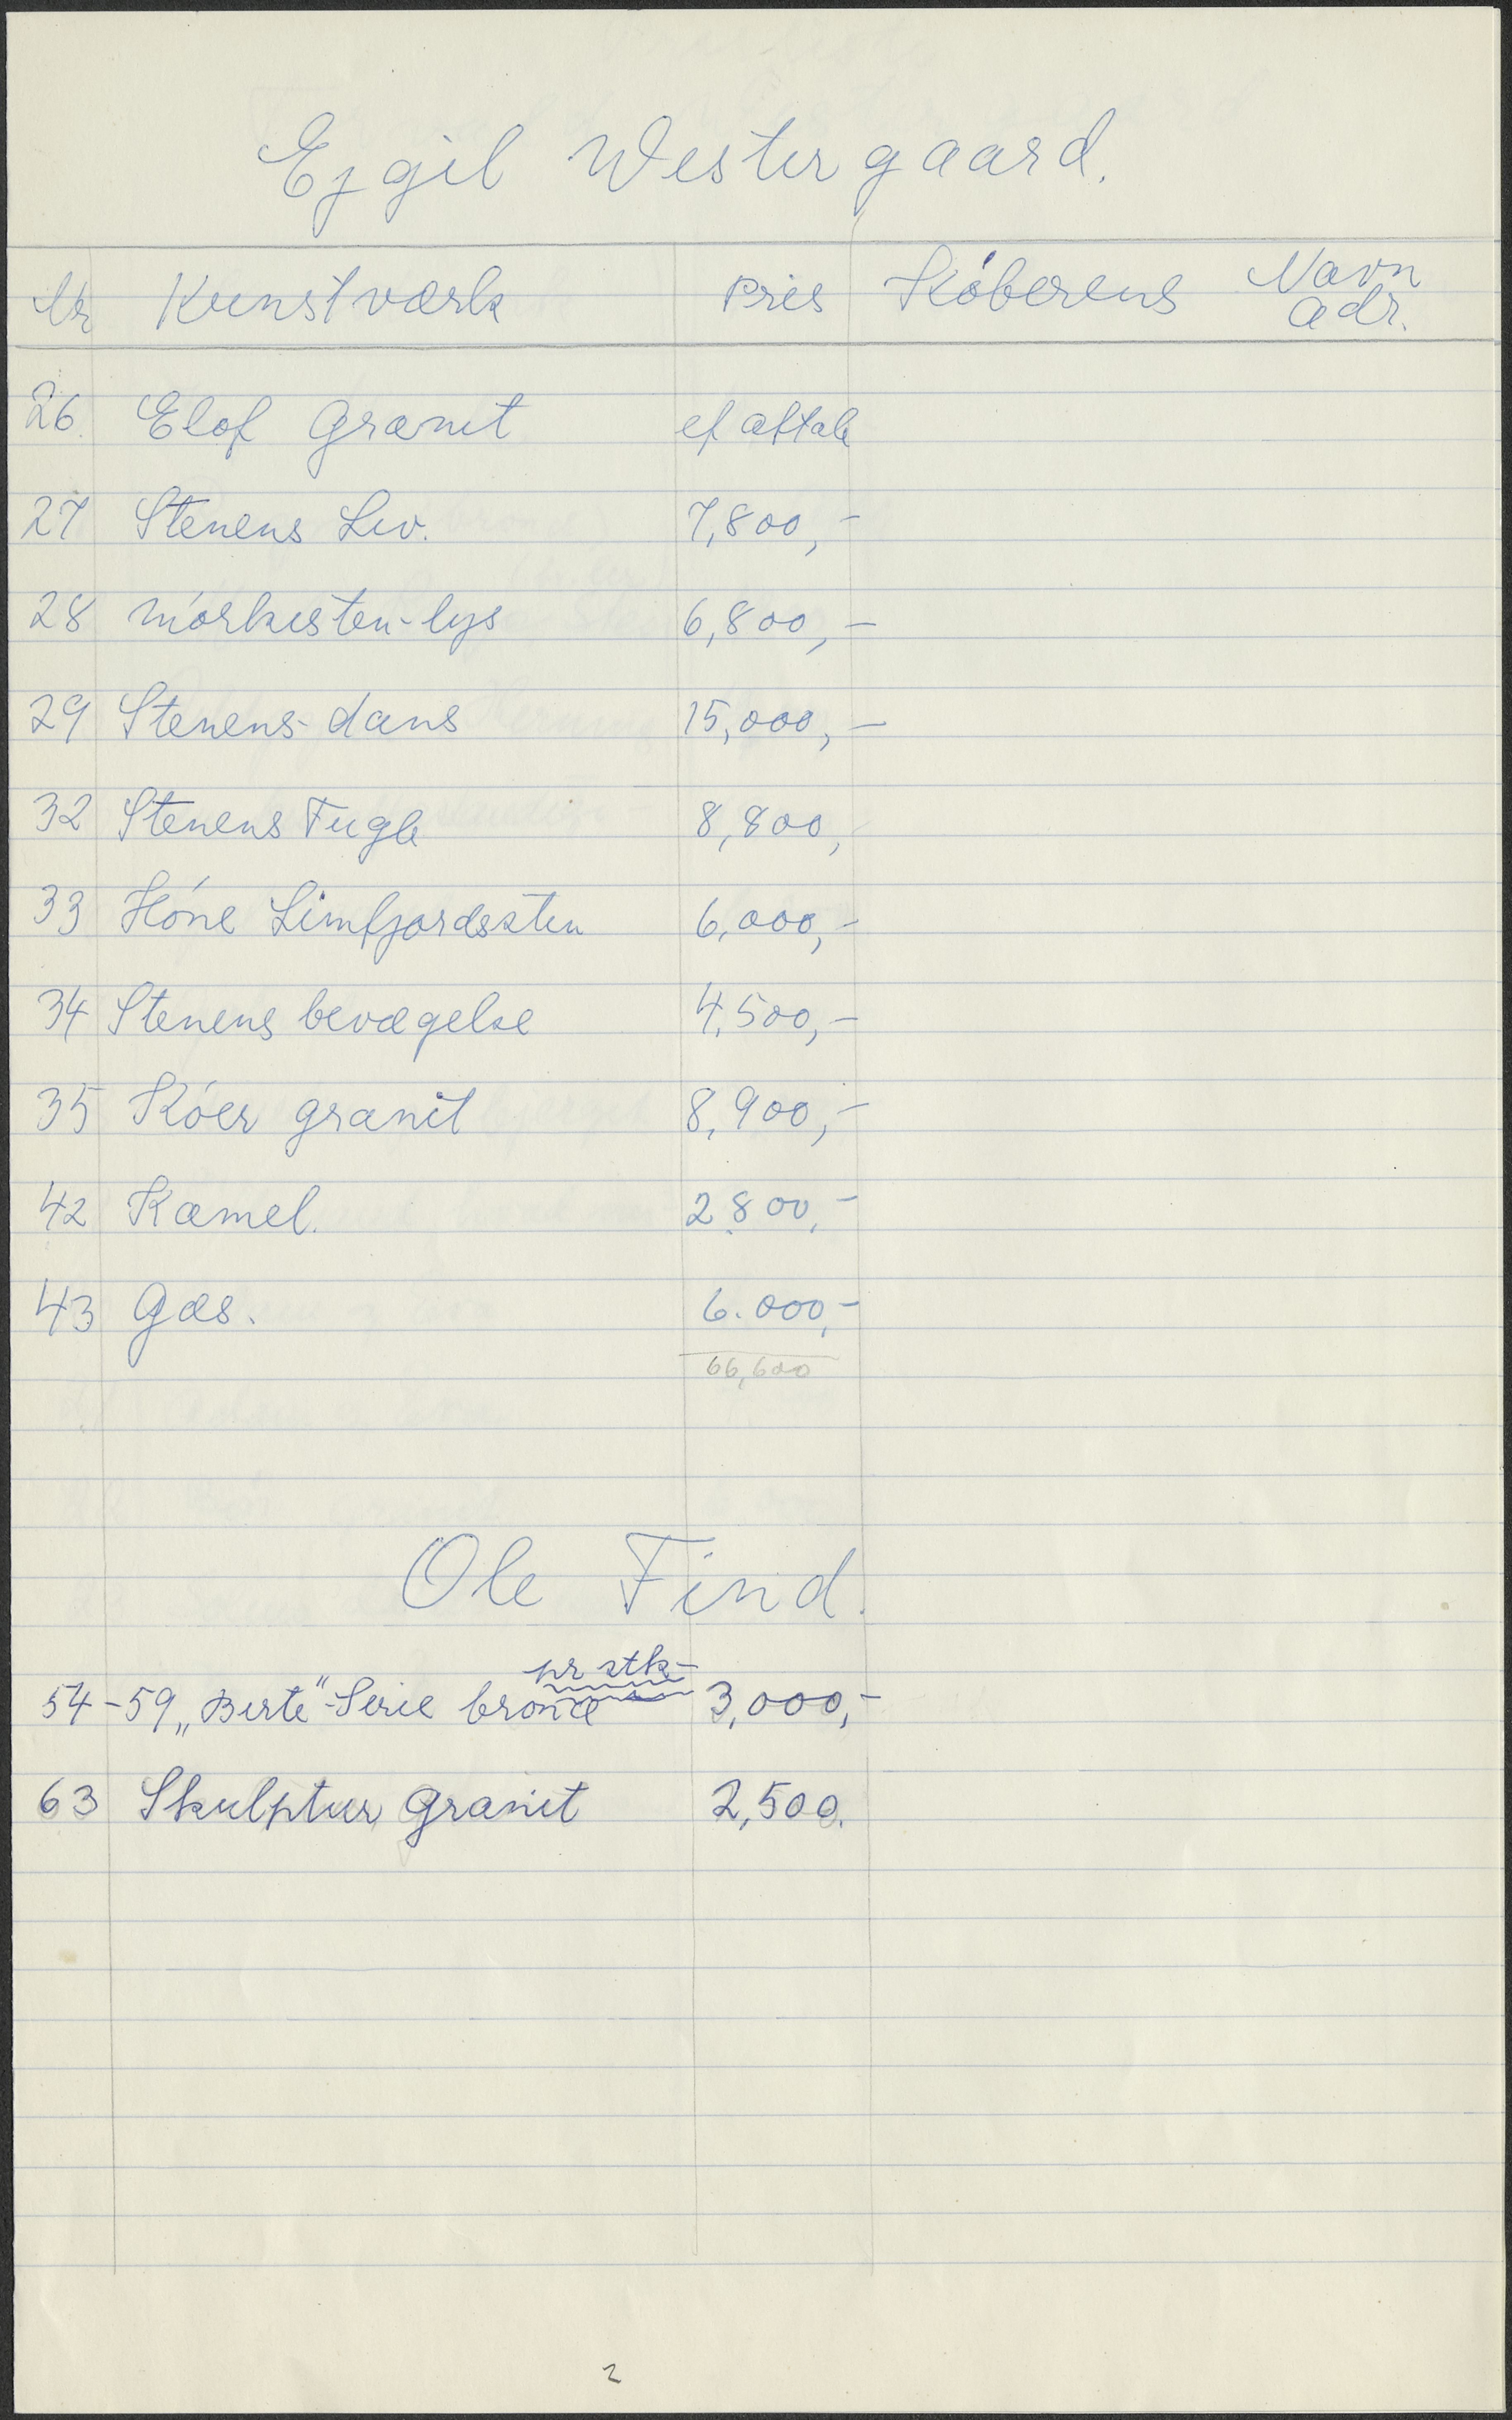 Ejgil Westergaard.
Nr Kunstværk Pris Køberens Navn
adr.
26 Elof Granit ef aftale
27 Stenens Liv. 7,800,-
28 mørkesten-lys 6,800,-
29 Stenens-dans 15,000,-
32 Stenens Fugle 8,800,-
33 Høne Limfjordssten 6,000,-
34 Stenens bevægelse 4,500,-
35 Køer granit 8,900,-
42 Kamel. 2.800,-
43 Gæs. 6.000,-
66,600
Ole Find.
pr stk-
54-59 „Berte"-Serie bronce 3,000,-
63 Skulptur granit 2,500.
2